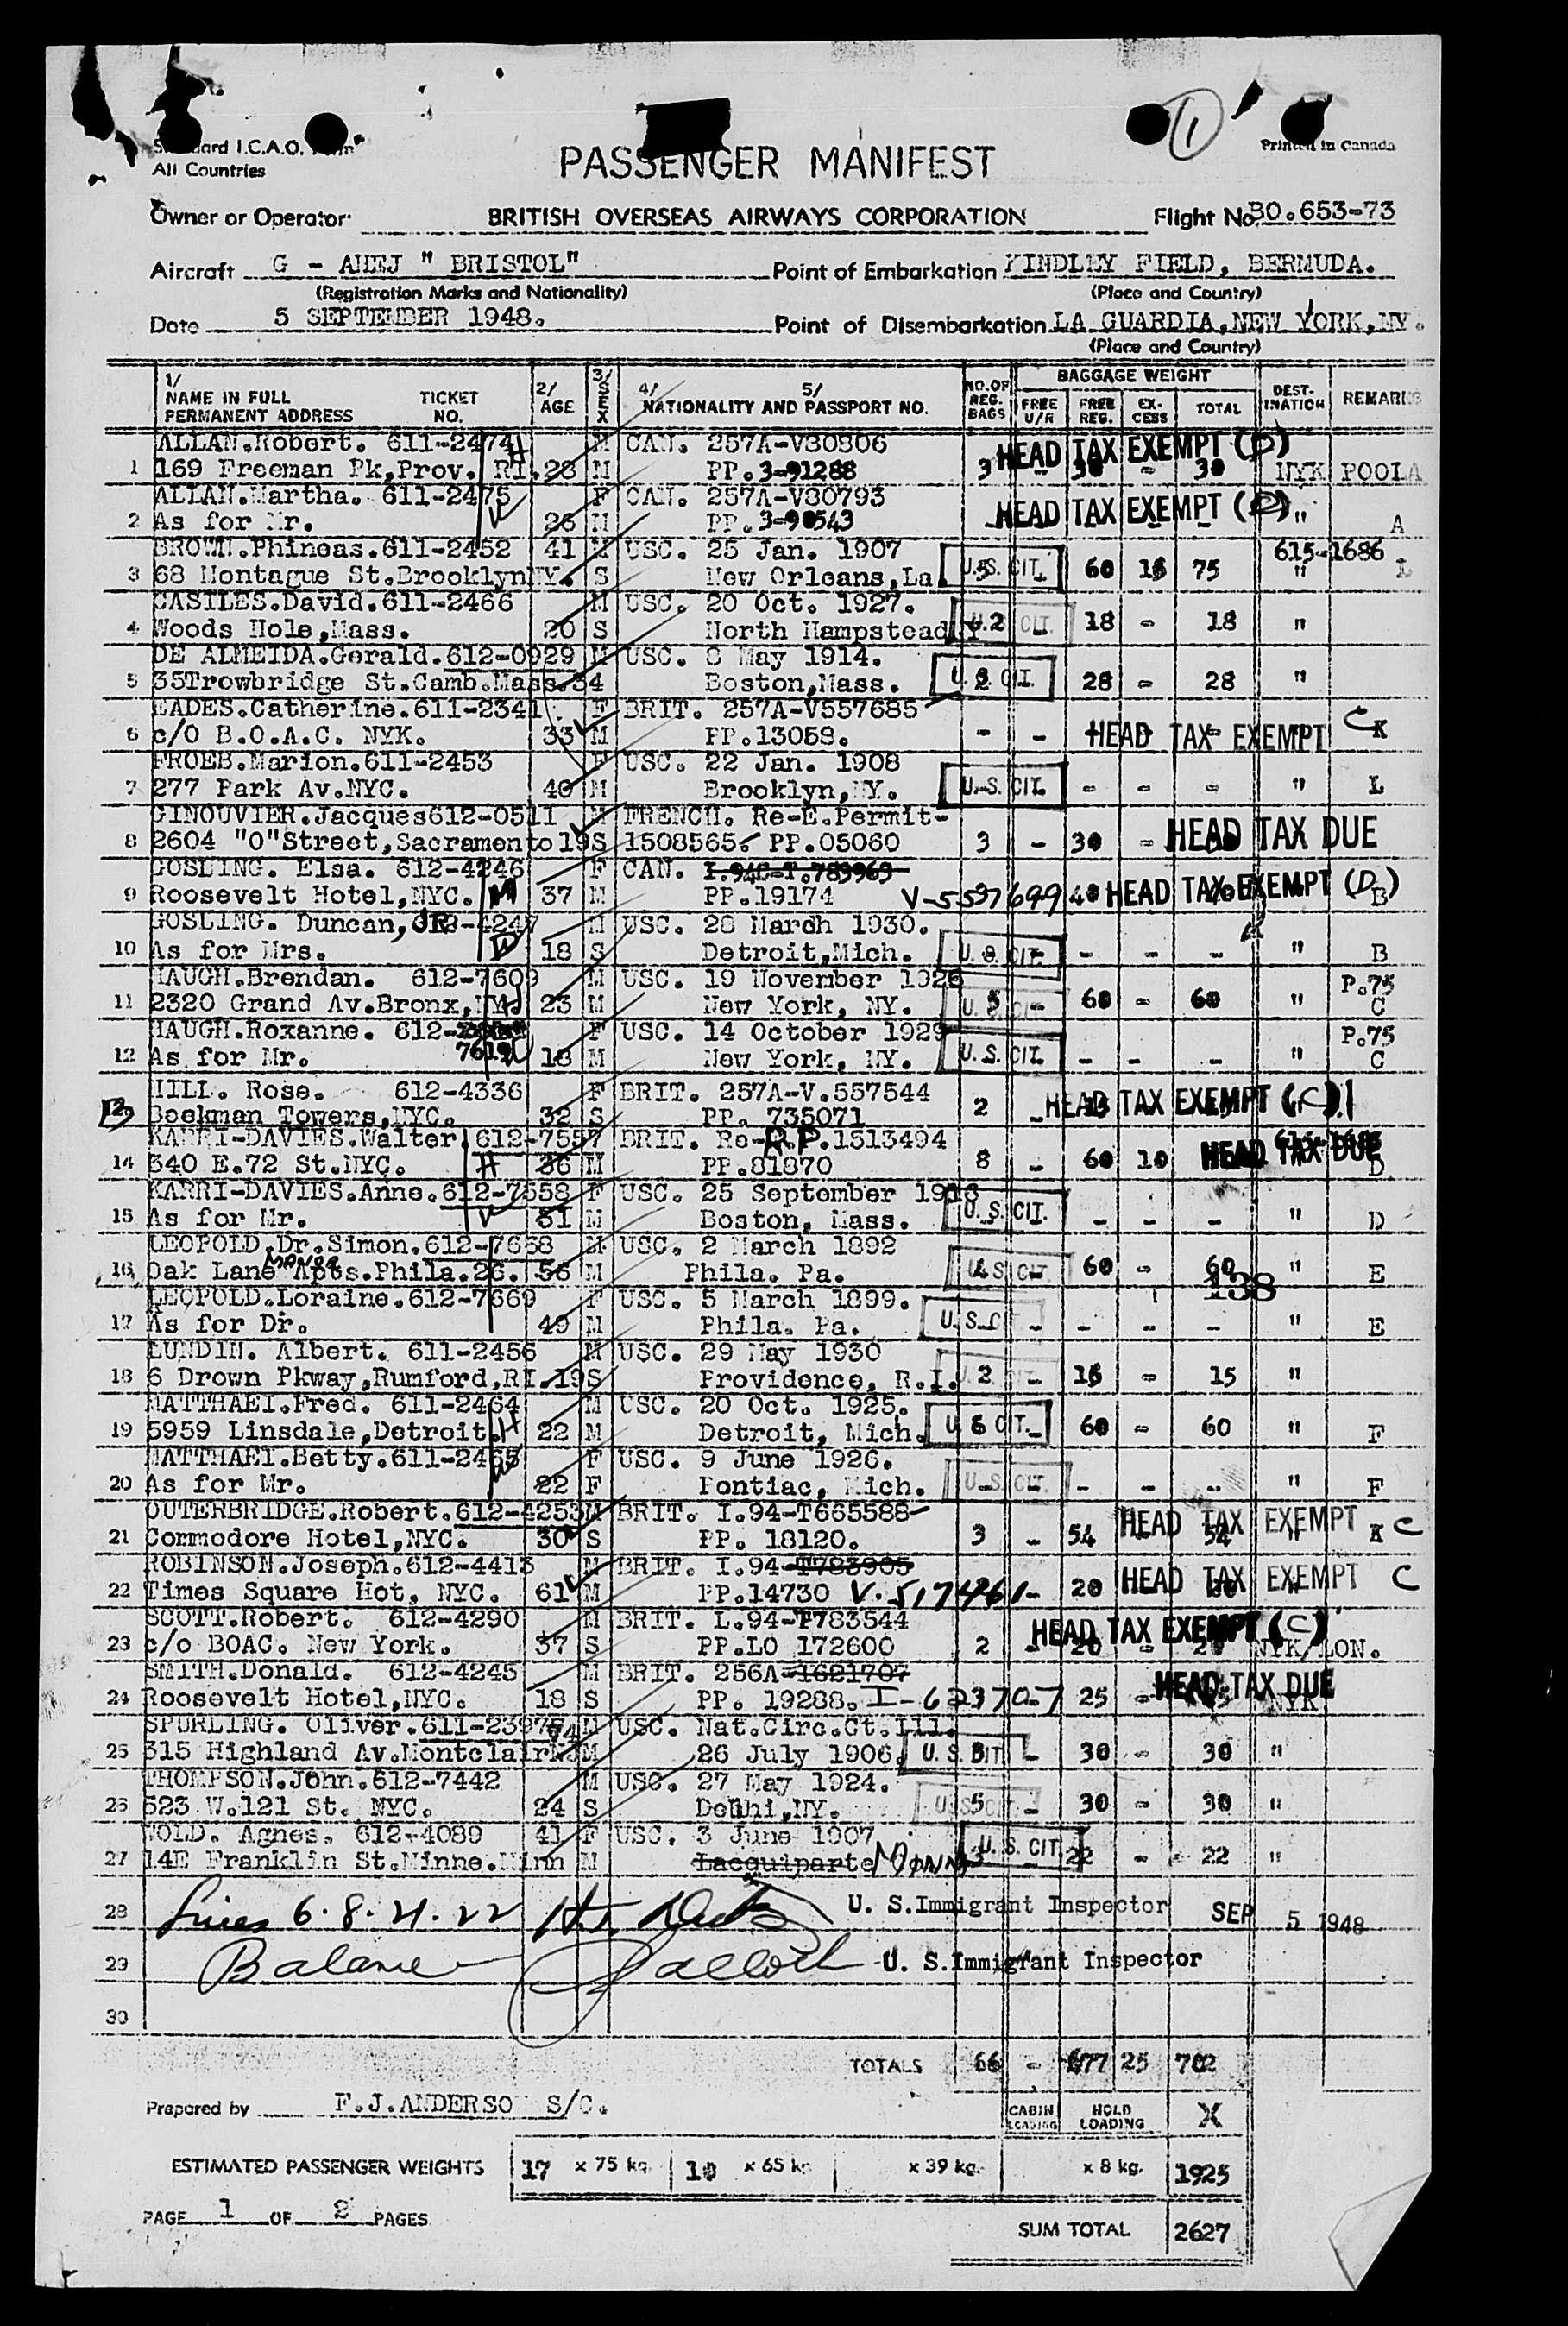 1
Standard I.C.A.O. Form
All Countries
Printed in Canada
PASSENGER MANIFEST
Owner or Operator BRITISH OVERSEAS AIRWAYS CORPORATION Flight No. BO.653-73
Aircraft G - AHEJ " BRISTOL" Point of Embarkation KINDLEY FIELD, BERMUDA.
(Registration Marks and Nationality) (Place and Country)
Date 5 SEPTEMBER 1948. Point of Disembarkation LA GUARDIA, NEW YORK, NY.
(Place and Country)
1/ NAME IN FULL PERMANENT ADDRESS TICKET NO. 2/ AGE 3/ SEX 4/ 5/ NATIONALITY AND PASSPORT NO. NO. OF REG. BAGS BAGGAGE WEIGHT FREE U/R FREE REG. EX-CESS TOTAL DEST-INATION REMARKS
ALLAN.Robert. 611-2474 M CAN. 257A-V80806 HEAD TAX EXEMPT (D)
1 169 Freeman Pk,Prov. RI. 28 M PP.3-91288 3 - 30 - 30 NYK POOLA
ALLAN.Martha. 611-2475 F CAN. 257A-V80793 HEAD TAX EXEMPT (D)
2 As for Mr. 26 M PP.3-90543 " A
BROWN.Phineas.611-2452 41 M USC. 25 Jan. 1907 615-1686
3 68 Montague St.Brooklyn NY. S New Orleans,La. U.S. CIT. 5 60 15 75 " L
CASTLES.David.611-2466 M USC. 20 Oct. 1927.
4 Woods Hole,Mass. 20 S North Hampstead U.S. CIT. 2 18 - 18 "
DE ALMEIDA.Gerald.612-0929 M USC. 8 May 1914.
5 35Trowbridge St.Camb.Mass.34 Boston,Mass. U.S. CIT. 2 28 - 28 "
EADES.Catherine.611-2341 F BRIT. 257A-V557685
6 c/o B.O.A.C. NYK. 33 M PP.13058. - - HEAD TAX EXEMPT C K
FROEB.Marion.611-2453 F USC. 22 Jan. 1908
7 277 Park Av.NYC. 40 M Brooklyn,NY. U.S. CIT. - - - " L
GINOUVIER.Jacques612-0511 M FRENCH. Re-E.Permit-
8 2604 "O"Street,Sacramento 19S 1508565. PP.05060 3 - 30 - HEAD TAX DUE
GOSLING. Elsa. 612-4246 F CAN. I.94C-T.789963
9 Roosevelt Hotel,NYC. 37 M PP.19174 V-5597699 40 HEAD TAX EXEMPT (D) B
GOSLING. Duncan, JR -4247 M USC. 28 Mardh 1930.
10 As for Mrs. 18 S Detroit,Mich. U.S. CIT. - - - " B
HAUGH.Brendan. 612-7609 M USC. 19 November 1925 P.75
11 2320 Grand Av.Bronx, 23 M New York, NY. U.S. CIT. 5 - 60 - 60 " C
HAUGH.Roxanne. 612- F USC. 14 October 1929 P.75
12 As for Mr. 7612 18 M New York, NY. U.S. CIT. - - - " C
HILL. Rose. 612-4336 F BRIT. 257A-V.557544
13 Beekman Towers,NYC. 32 S PP. 735071 2 - HEAD TAX EXEMPT (C)
KARRI-DAVIES.Walter 612-7557 BRIT. Re-R.P.1513494
14 340 E.72 St.NYC. 36 M PP.81870 8 - 60 10 HEAD TAX DUE D
KARRI-DAVIES.Anne.612-7558 F USC. 25 September 1916
15 As for Mr. 31 M Boston, Mass. U.S. CIT. - - - " D
LEOPOLD,Dr.Simon.612-7668 M USC. 2 March 1892
16 Oak Lane MANOR Apts.Phila.26. 56 M Phila. Pa. U.S. CIT. 60 - 60 " E
138
LEOPOLD.Loraine.612-7669 F USC. 5 March 1899.
17 As for Dr. 49 M Phila. Pa. U.S. C - - - - " E
LUNDIN. Albert. 611-2456 M USC. 29 May 1930
18 6 Drown Pkway,Rumford,RI.19S Providence, R.I. 2 - 15 - 15 "
MATTHAEI.Fred. 611-2464 M USC. 20 Oct. 1925.
19 5959 Linsdale,Detroit. 22 M Detroit, Mich. U.S. CIT. 6 - 60 - 60 " F
MATTHAEI.Betty.611-2465 F USC. 9 June 1926.
20 As for Mr. 22 F Pontiac, Mich. U.S. CIT. - - - " F
OUTERBRIDGE.Robert.612-4253M BRIT. I.94-T665588
21 Commodore Hotel,NYC. 30 S PP. 18120. 3 - 54 HEAD TAX EXEMPT 54 K C
ROBINSON.Joseph.612-4413 M BRIT. I.94-T783905
22 Times Square Hot, NYC. 61 M PP.14730 V.517461 - 20 HEAD TAX EXEMPT 20 C
SCOTT.Robert. 612-4290 M BRIT. L.94-T783544
23 c/o BOAC. New York. 37 S PP.LO 172600 2 - 20 HEAD TAX EXEMPT (C) NYK/LON.
SMITH.Donald. 612-4245 M BRIT. 256A-1621707
24 Roosevelt Hotel,NYC. 18 S PP. 19288. I-623707 25 - HEAD TAX DUE NYK
SPURLING. Oliver.611-2397 M USC. Nat.Circ.Ct.Ill.
25 315 Highland Av.Montclair NJ M 26 July 1906. U.S. CIT. 3 - 30 - 30 "
THOMPSON.John.612-7442 M USC. 27 May 1924.
26 523 W.121 St. NYC. 24 S Delhi,NY. U.S. CIT. 5 - 30 - 30 "
WOLD. Agnes. 612-4089 41 F USC. 3 June 1907
27 14E Franklin St.Minne.Minn M Lacquiparte MINN U.S. CIT. 22 - 22 "
28 Lines 6.8.21.22 U. S.Immigrant Inspector SEP 5 1948
29 Balance U. S.Immigrant Inspector
30
TOTALS 66 - 677 25 702
Prepared by F.J.ANDERSO S/C. CABIN LOADING HOLD LOADING X
ESTIMATED PASSENGER WEIGHTS 17 x 75 kg. 10 x 65 kg. x 39 kg. x 8 kg. 1925
PAGE 1 OF 2 PAGES
SUM TOTAL 2627